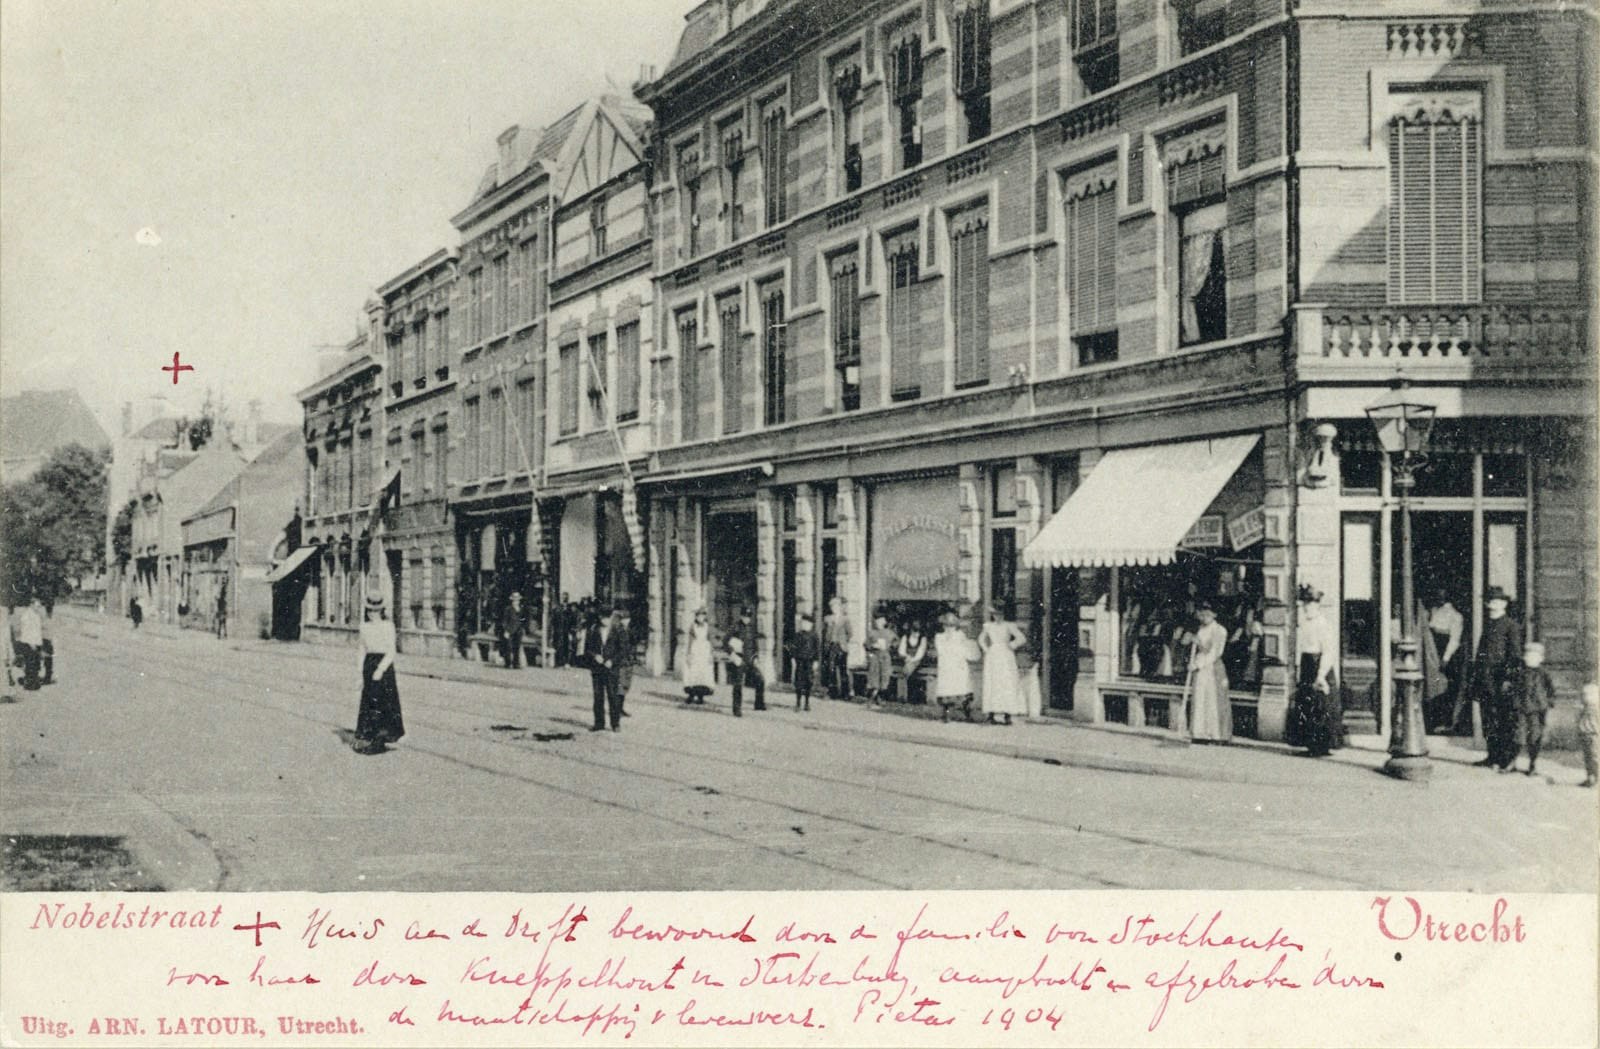 Nobelstraat
Utrecht
+ Huis aan de Drift bewoond door de familie von Stockhausen,
voor haar door Kneppelhout v. Sterkenburg, aangekocht en afgebroken door
de maatschappij v levensverz. Pietas 1904
Uitg. ARN. LATOUR, Utrecht.